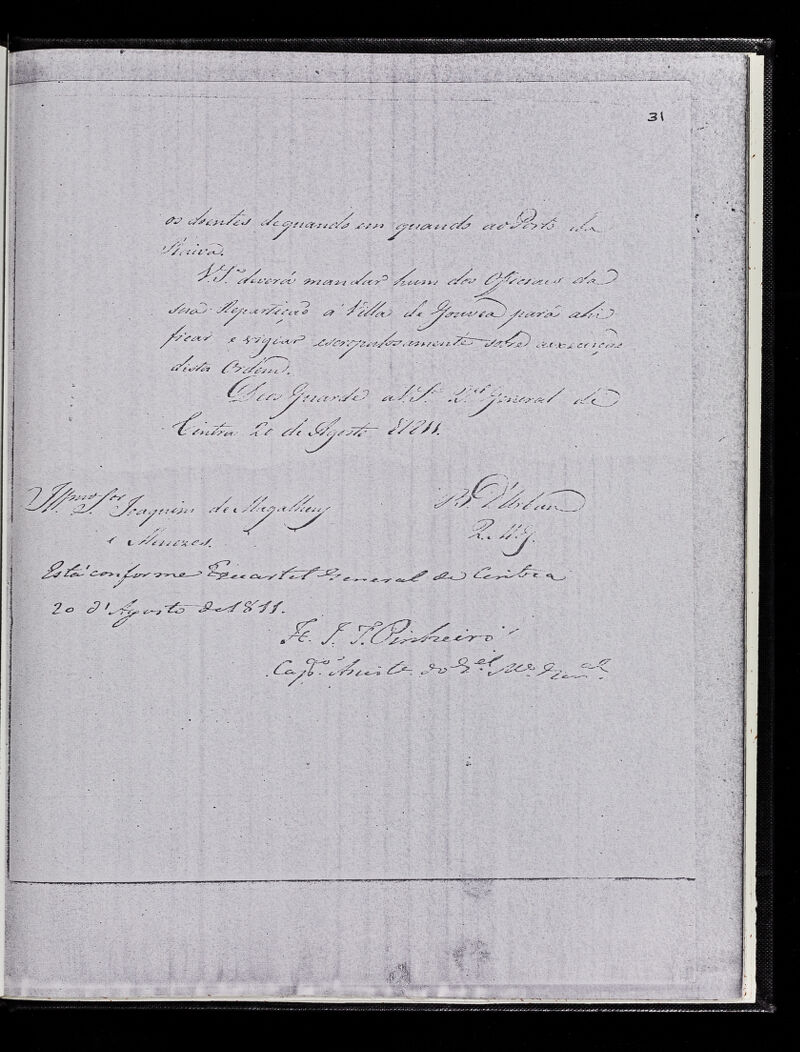 31
os doentes dequando em quando ao Porto da
Raiva.
V. Sa. deverá mandar hum dos Officiaes da
sua Repartição á Villa de Gouvea para ahi
ficar e vigiar escropulosamente sobre a execução
desta Ordem.
Deos Guarde a V. Sa. Qel. General de
Cintra 20 de Agosto 1811.
Illmo. Sor. Joaquim de Magalhens
e Menezes.
B. D'Urban
Q. M. G.
Está conforme Quartel General de Cintra
20 d'Agosto de 1811.
F. J. T. Pinheiro
Capão. Assiste. do Qel. Me. General.